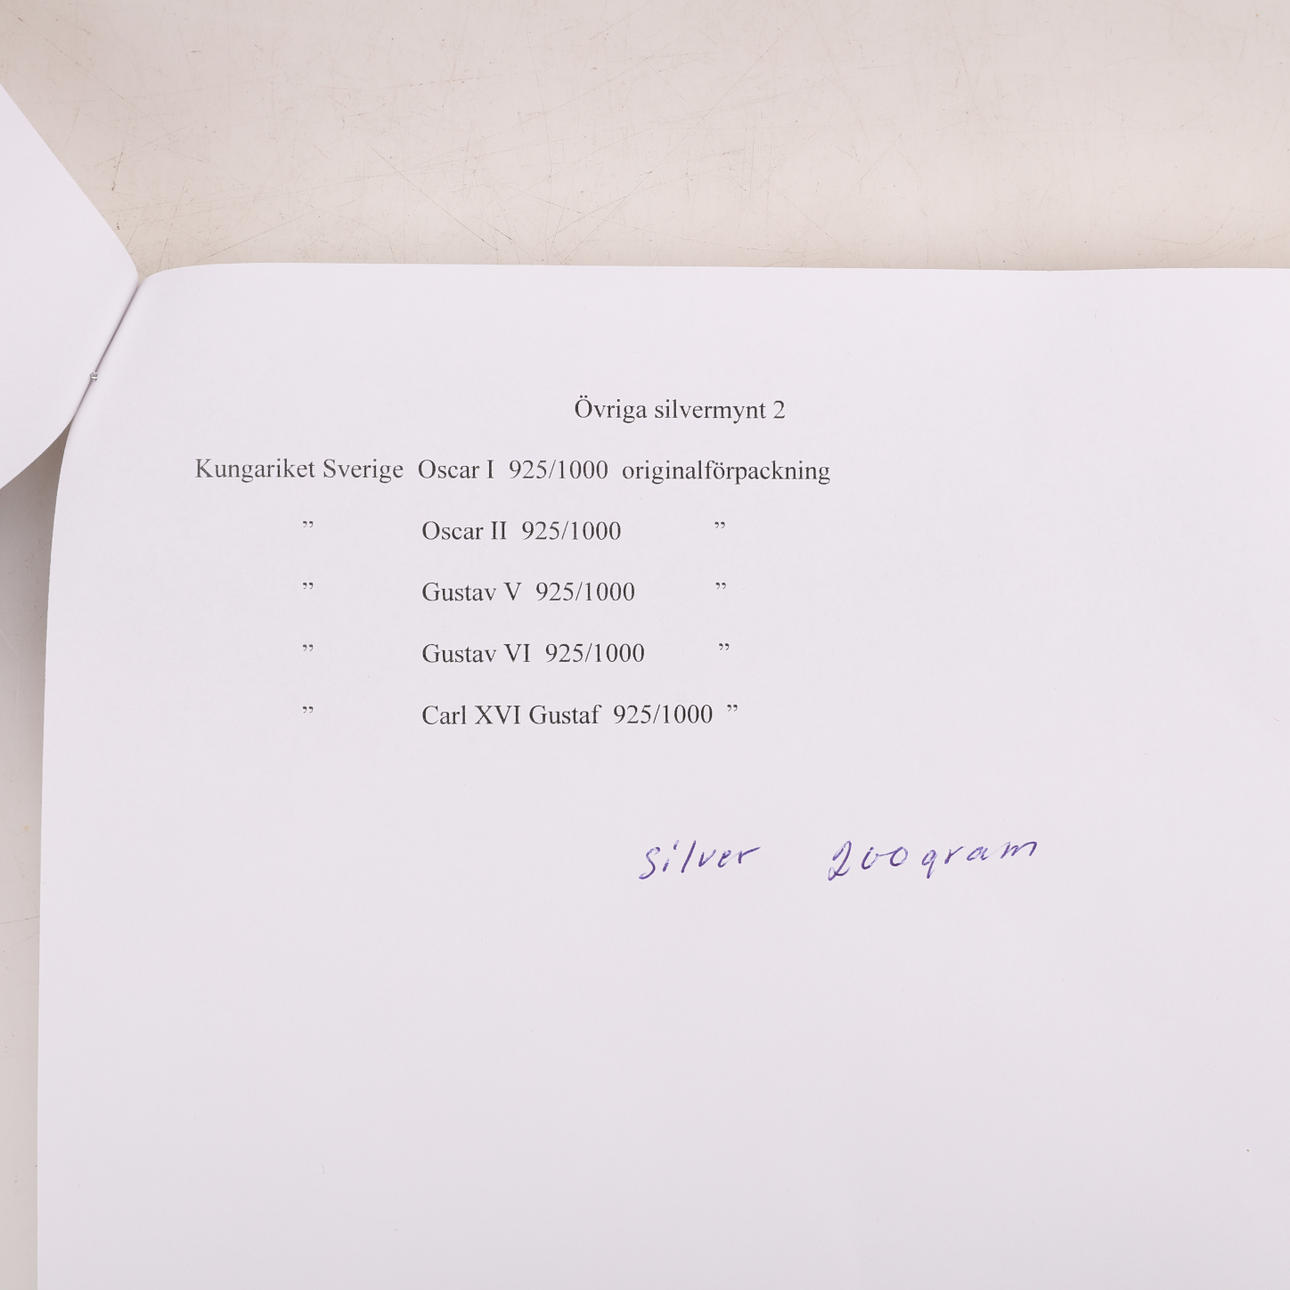 Övriga silvermynt 2
Kungariket Sverige Oscar I 925/1000 originalförpackning
” Oscar II 925/1000 ”
” Gustav V 925/1000 ”
” Gustav VI 925/1000 ”
” Carl XVI Gustaf 925/1000 ”
Silver 200 gram